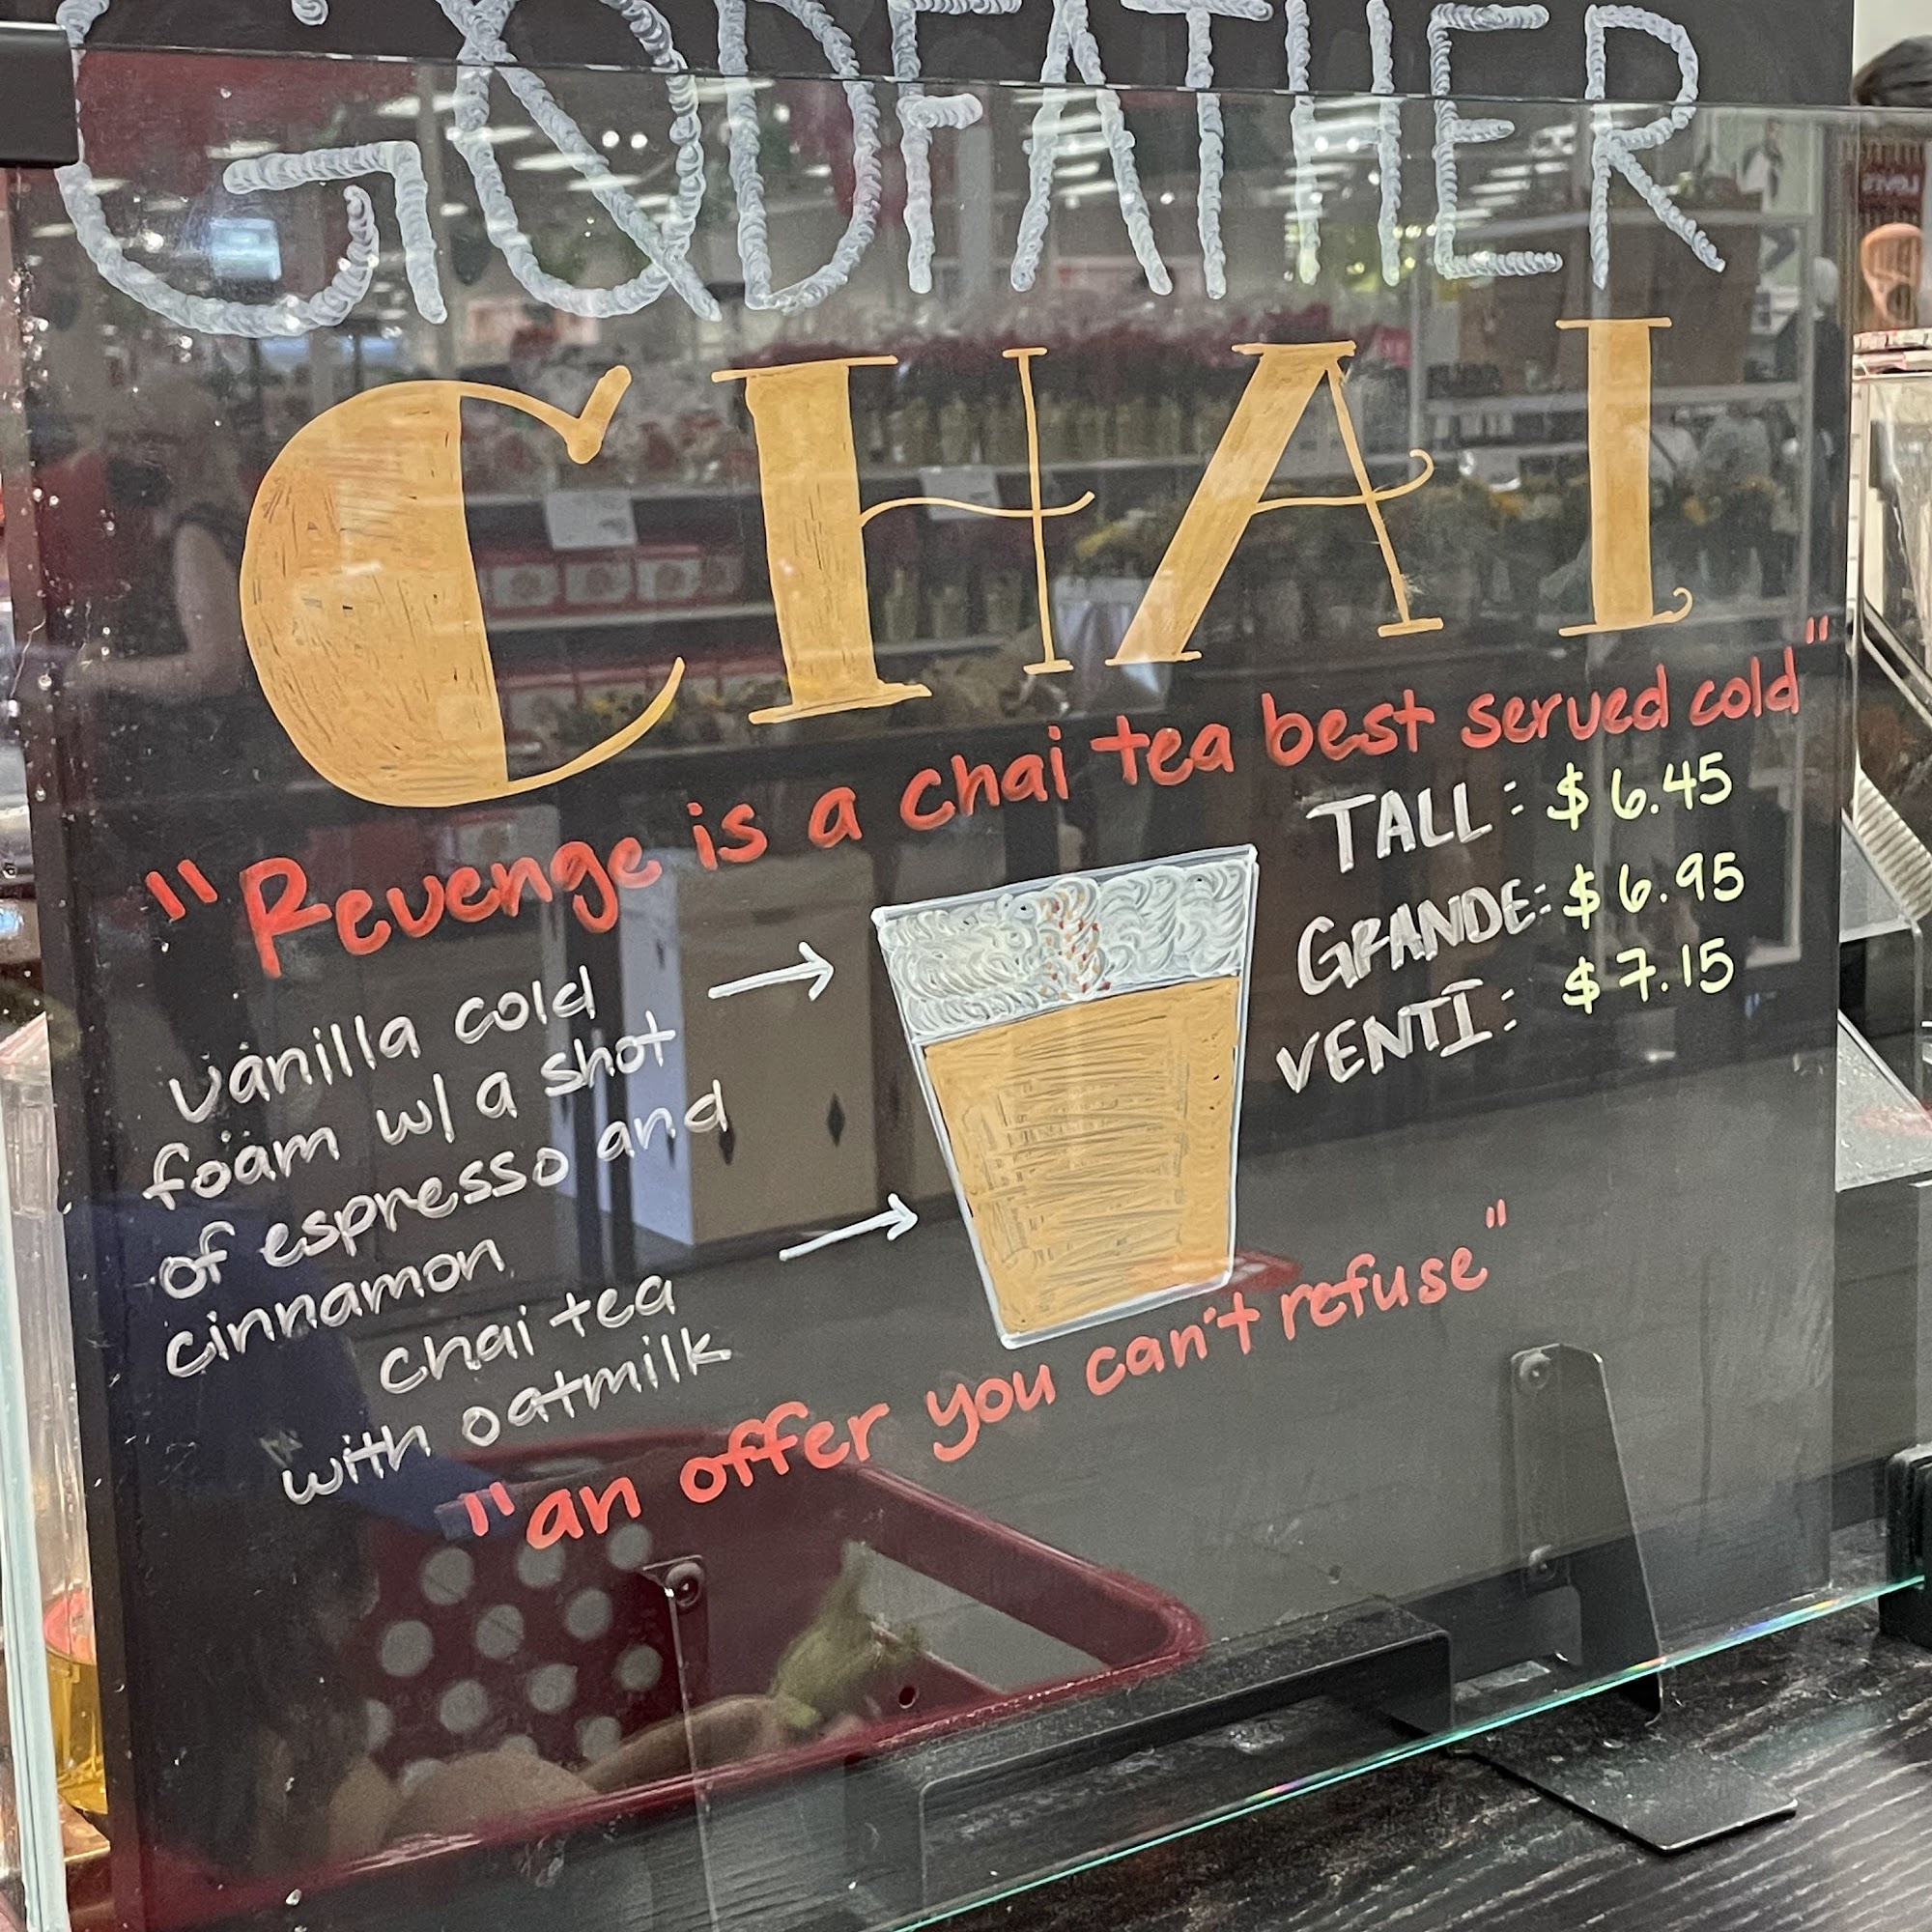 GODFATHER
CHAI
"Revenge is a chai tea best served cold"
TALL: $6.45
GRANDE: $6.95
VENTI: $7.15
vanilla cold
foam w/ a shot
of espresso and
cinnamon
chai tea
with oatmilk
"an offer you can't refuse"